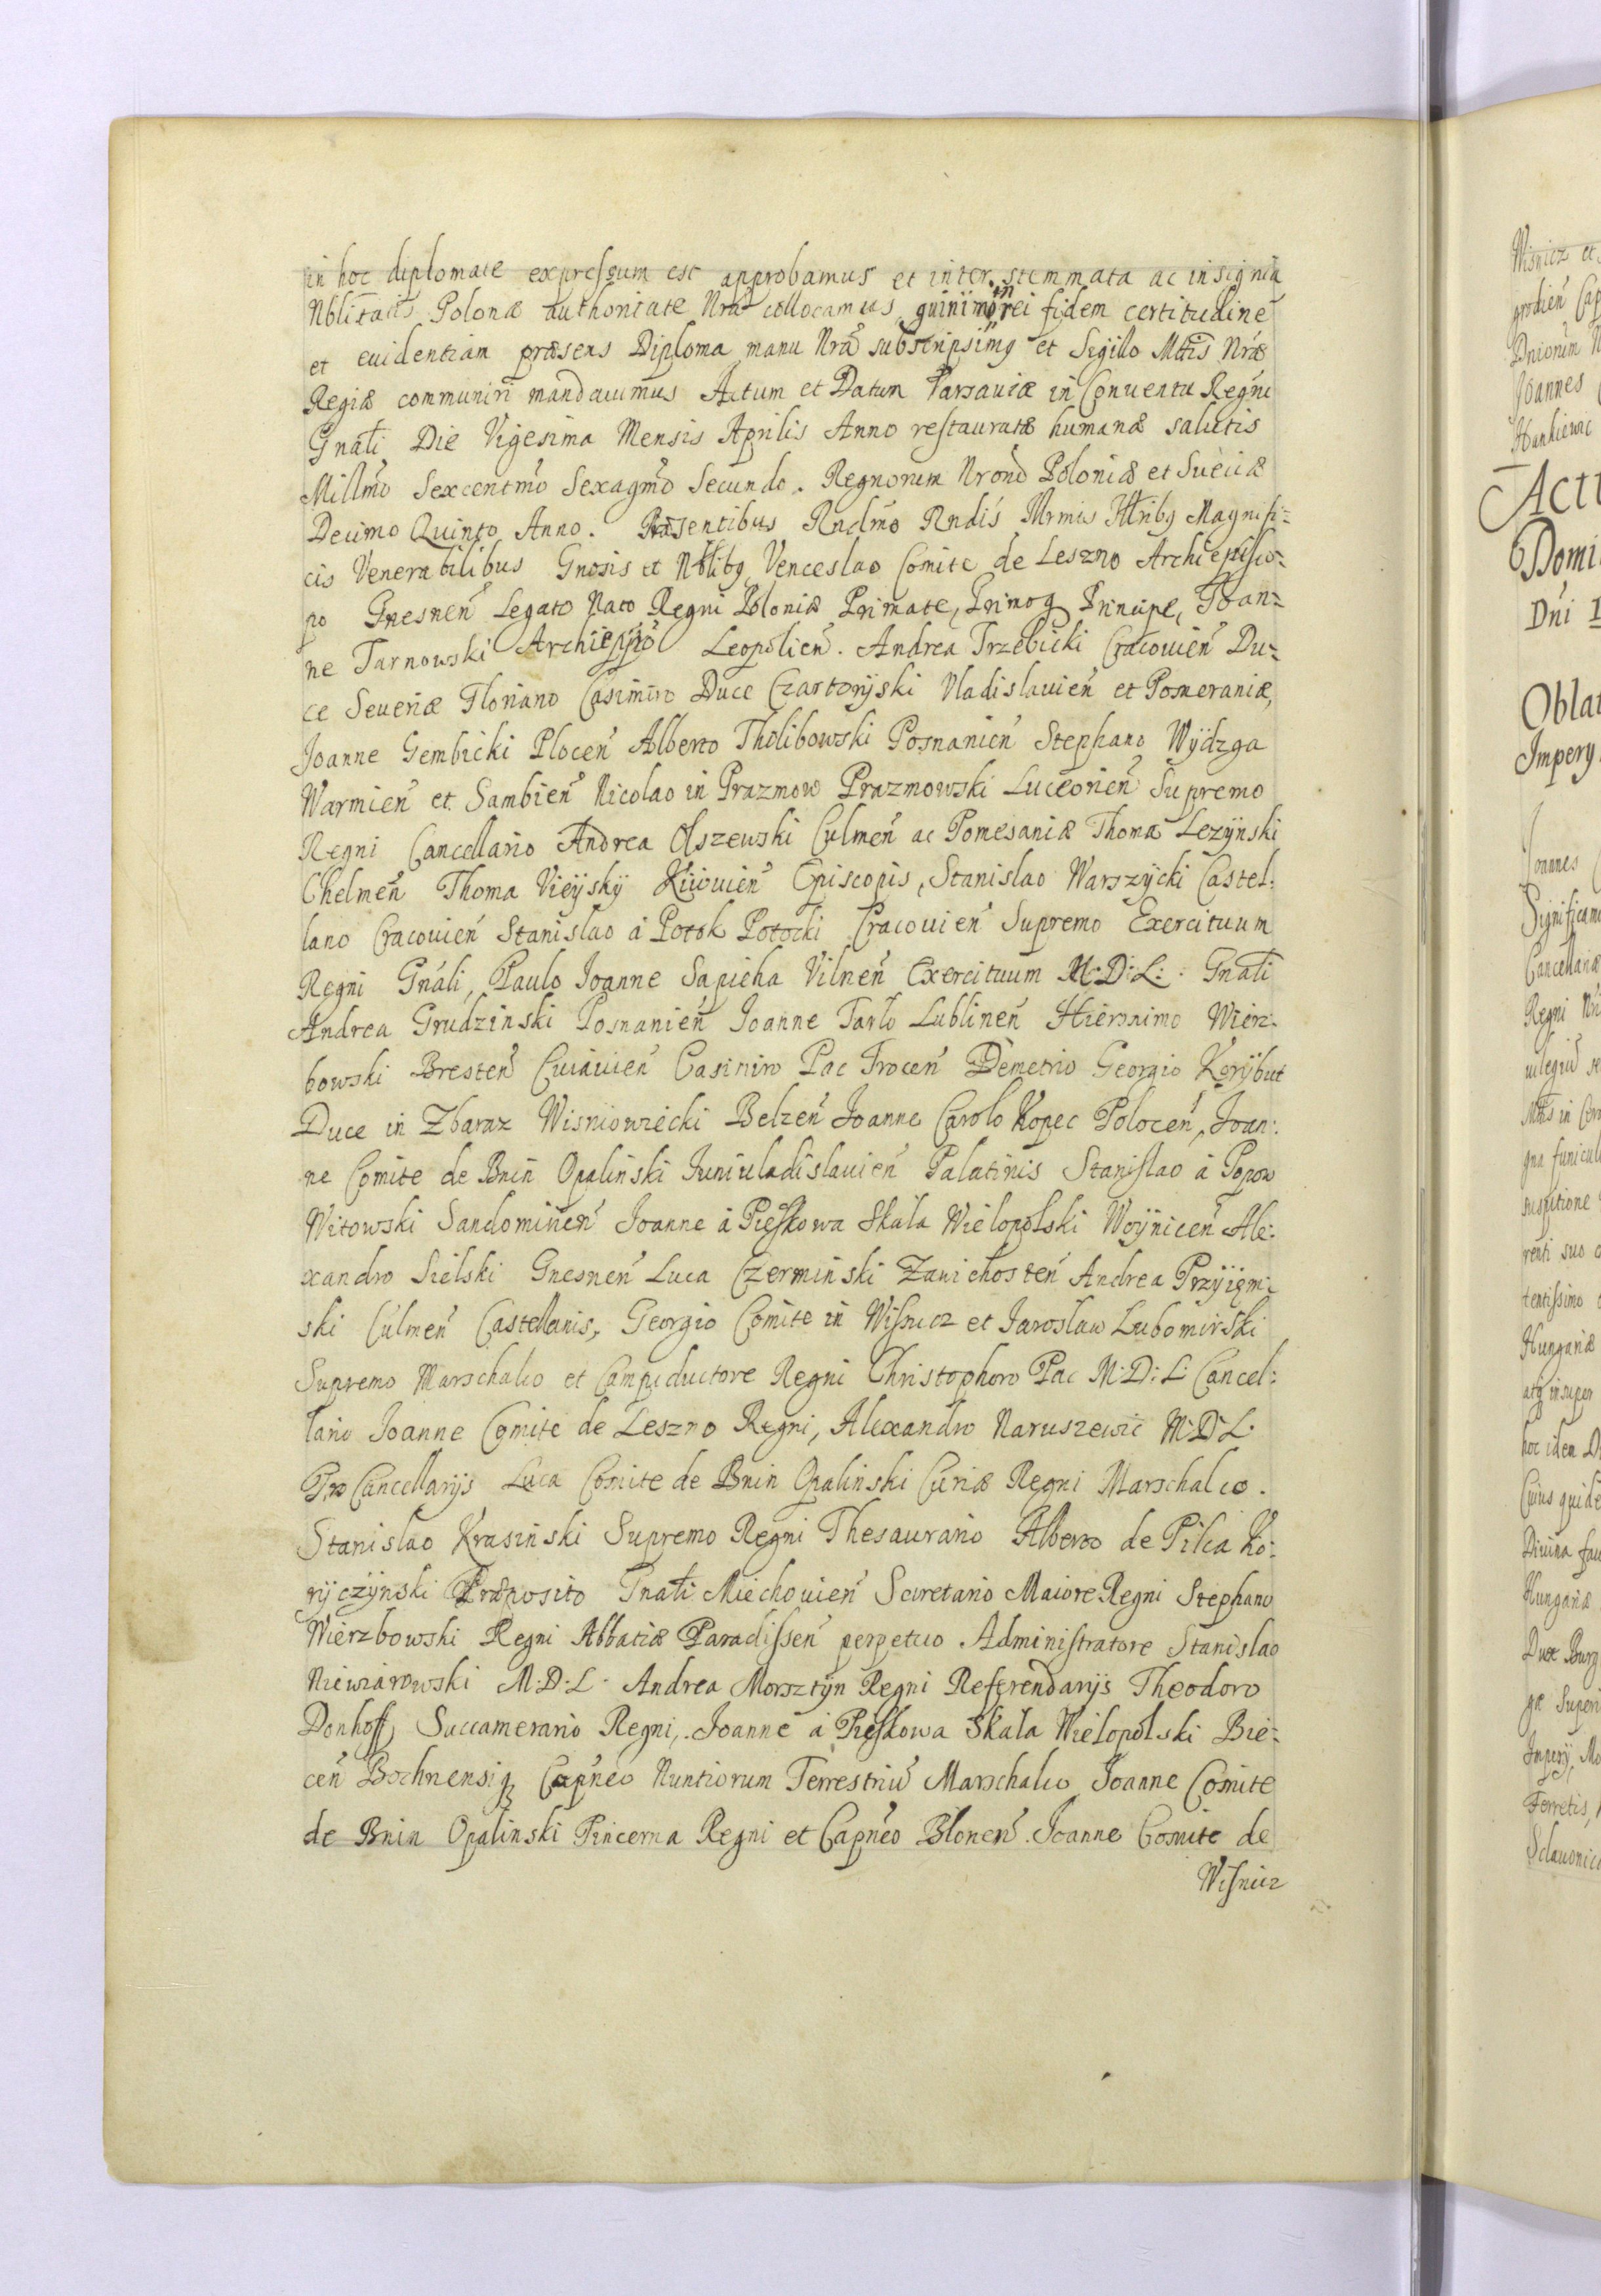 in hoc diplomate expressum est approbamus et inter stemmata ac insignia
Nblitatis Polonæ authoritate Nrã collocamus, quinimo in rei fidem certitudinē
et euidentiam præsens Diploma manu Nrã subscripsimq et Sigillo Mttis Nræ
Regiæ communiri mandauimus Actum et Datum Varsauiæ in Conuentu Regni
Gnãli Die Vigesima Mensis Aprilis Anno restauratæ humanæ salutis
Millmo Sexcentmo Sexagmo Secundo. Regnorum Nrorō Poloniæ et Sueciæ
Decimo Quinto Anno. Præsentibus Rndmo Rndis Magnifi=
cis Venerabilibus Gnosis et Nblibq Venceslao Comite de Leszno Archiepisco=
po Gnesneñ Legato Nato Regni Poloniæ Primate, Primoq Principe, Joan=
ne Tarnowski Archieppo Leopolieñ. Andrea Trzebicki Cracouieñ Du=
ce Seueriæ Floriano Casimiro Duce Czartoryski Vladislauieñ et Pomeraniæ,
Joanne Gembicki Ploceñ Alberto Tholibowski Posnanieñ Stephano Wydzga
Warmieñ et Sambieñ Nicolao in Prazmow Prazmowski Luceorieñ Supremo
Regni Cancellario Andrea Olszewski Culmeñ ac Pomesaniæ Thoma Lezynski
Chelmeñ Thoma Vieyskÿ Kiiouieñ Episcopis, Stanislao Warszycki Castel:
lano Cracouieñ Stanislao à Potok Potocki Cracouieñ Supremo Exercituum
Regni Gnãli, Paulo Joanne Sapieha Vilneñ Exercituum M:D:L: Gnãli
Andrea Grudzinski Posnanieñ Joanne Tarlo Lublineñ Hieronimo Wierz-
bowski Bresteñ Cuiauieñ Casimiro Pac Troceñ Demetrio Georgio Korybut
Duce in Zbaraz Wisniowiecki Belzeñ Joanne Carolo Kopec Poloceñ, Joan:
ne Comite de Bnin Opalinski Juniuladislauieñ Palatinis Stanislao à Popow
Witowski Sandomireñ Joanne à Pieskowa Skala Wielopolski Woyniceñ Ale:
xandro Sielski Gnesneñ Luca Czerminski Zawichosteñ Andrea Przyigm:
ski Culmeñ Castellanis, Georgio Comite in Wisnicz et Jaroslaw Lubomirski
Supremo Marschalco et Campiductore Regni Christophoro Pac M:D:L: Cancel:
lario Joanne Comite de Leszno Regni, Alexandro Naruszewic M:D:L:
Pro Cancellarijs Luca Comite de Bnin Opalinski Curiæ Regni Marschalco.
Stanislao Krasinski Supremo Regni Thesaurario Alberto de Pilca Ko:
ryczynski Præposito Gnãli Miechouieñ Secretario Maiore Regni Stephano
Wierzbowski Regni Abbatiæ Paradisseñ perpetuo Administratore Stanislao
Niewiarowski M:D:L: Andrea Morsztyn Regni Referendarijs Theodoro
Donhoff, Succamerario Regni, Joanne à Pieskowa Skala Wielopolski Bie:
ceñ Bochnensiq Capneo Nuntiorum Terrestriū Marschalco Joanne Comite
de Bnin Opalinski Pincerna Regni et Capneo Bloneñ. Joanne Comite de
Wisnicz
Wisnicz et
Joannes
Domi
Oblat
Impery
Joannes
Regni
Mttis in
gna funicul
suspitione
renti suo
tentissimo
Hungariæ
atq insuper
hoc idem D
Cuius quide
Diuina fau
Hungariæ
Dux Burg
Ferretis,
Sclauonic